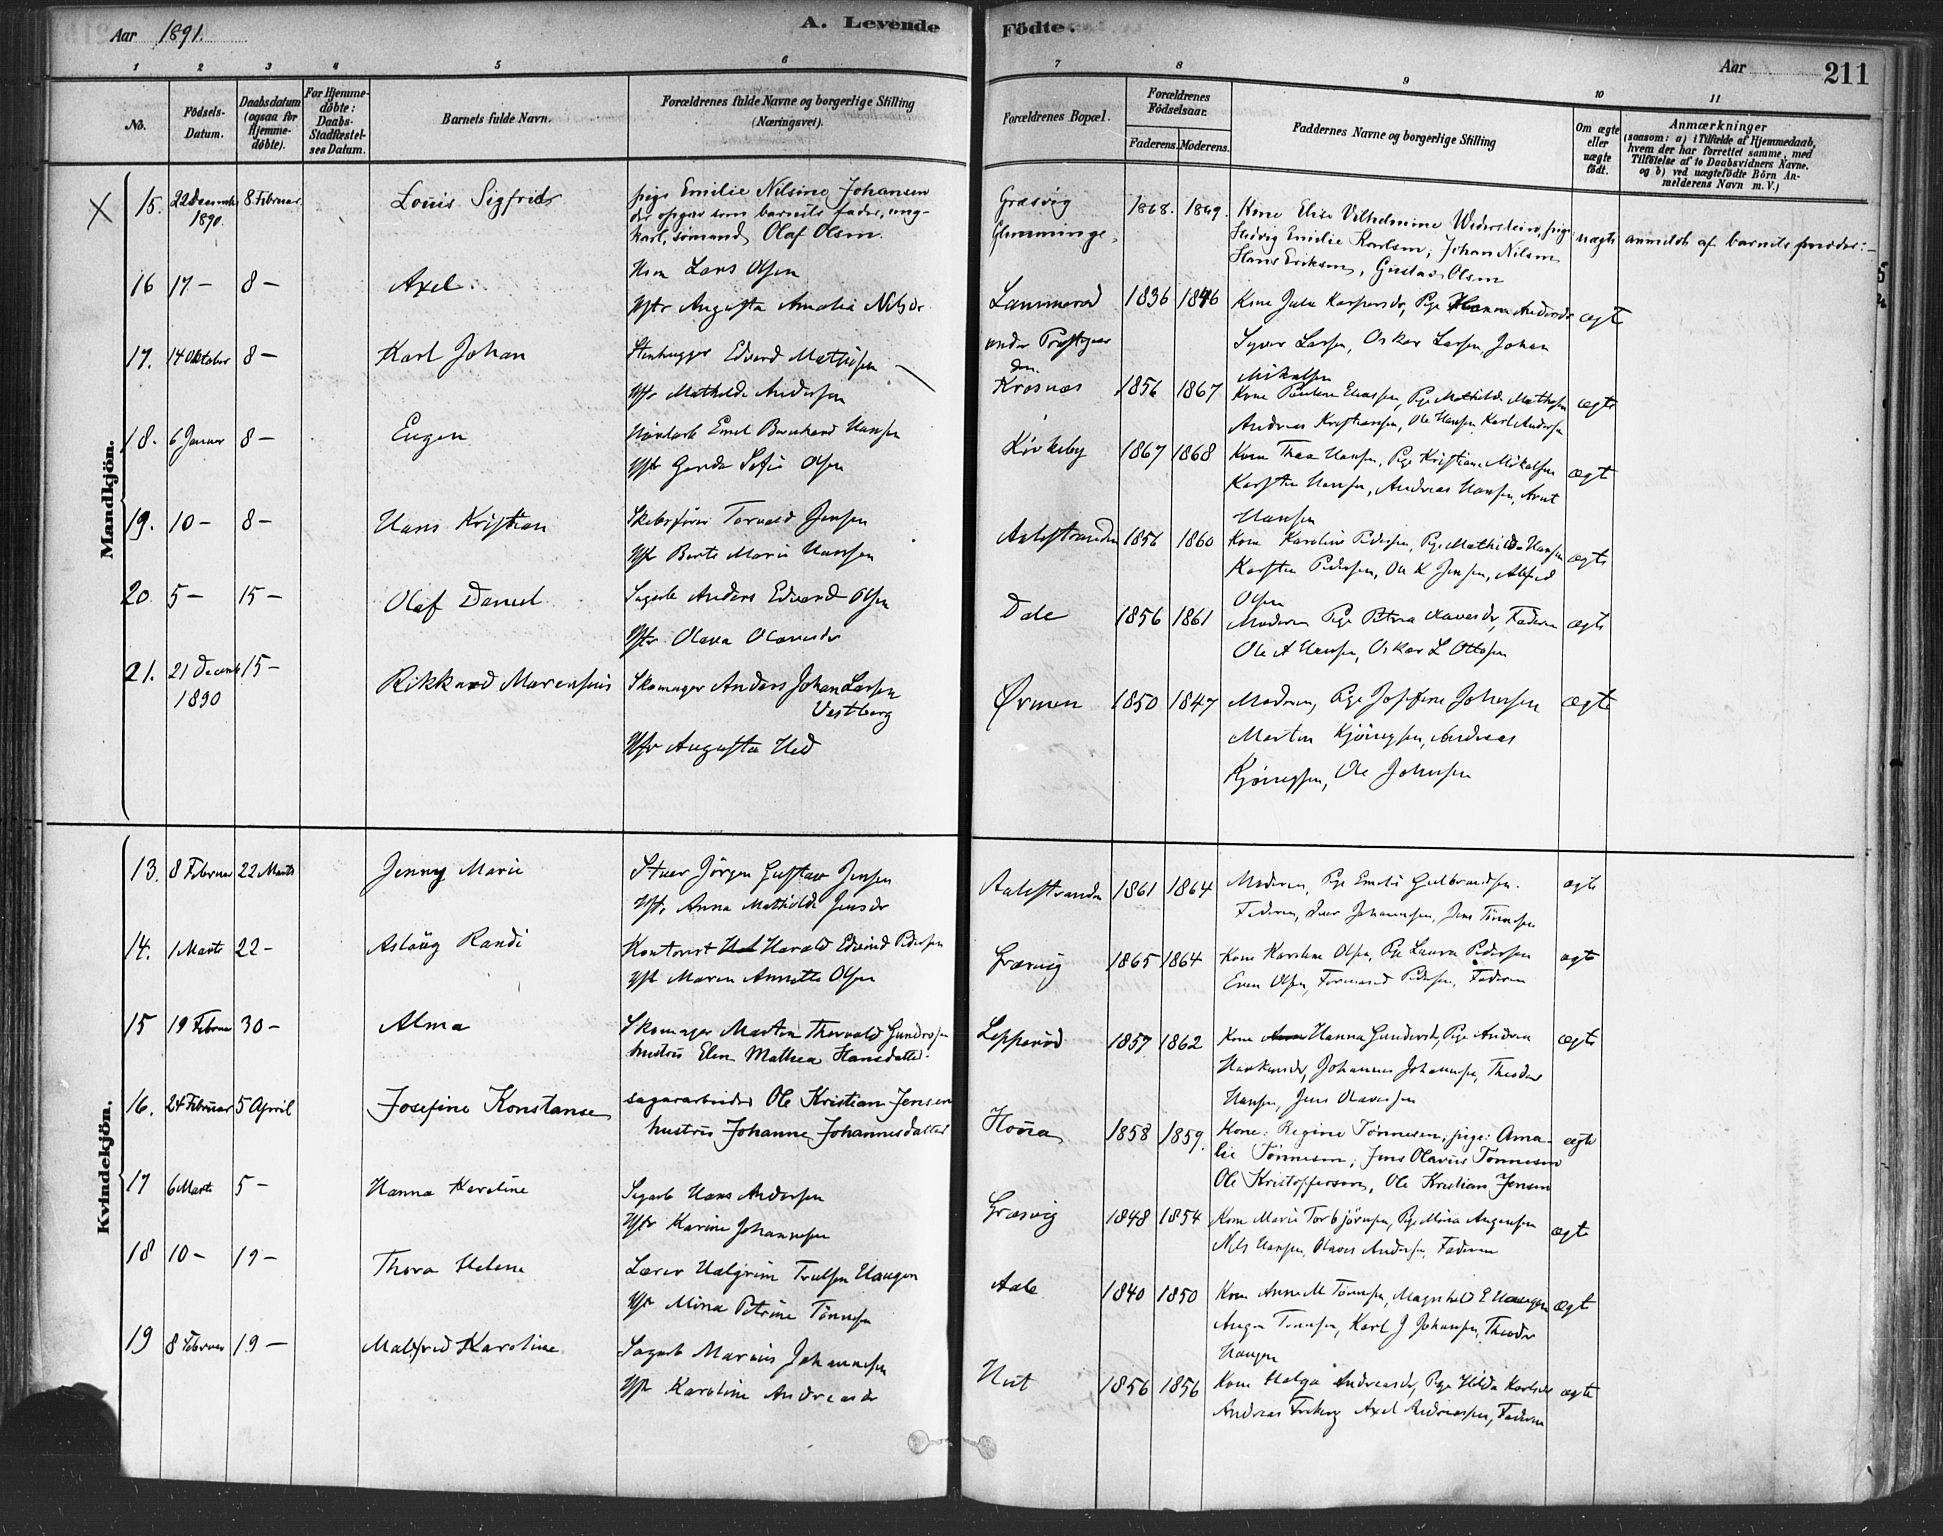 Aar 1891.
A. Levende
Födte.
Aar
211
1 2 3 4 5 6 7 8 9 10 11
No.
Födsels-Datum.
Daabsdatum (ogsaa for Hjemme-döbte).
For Hjemme-döbte: Daabs-Stadfæstel-ses Datum.
Barnets fulde Navn.
Forældrenes fulde Navne og borgerlige Stilling (Næringsvei).
Forældrenes Bopæl.
Forældrenes Födselsaar.
Faderens. Moderens.
Faddernes Navne og borgerlige Stilling
Om ægte eller uægte födt.
Anmærkninger
(saasom: a) i Tilfælde af Hjemmedaab,
hvem der har forrettet samme, med
Tilföielse af to Daabsvidners Navne.
og b) ved uægtefödte Börn An-
melderens Navn m. V.)
Mandkjön.
15. 22 December 1890. 8 Februar Louis Sigfrids
pige Emilie Nilsine Johansen
der opgav som barnets fader, ung-
karl, sömand Olaf Olsen.
Græsvig Glemminge. 1868. 1869.
Kone Elise Vilhelmine pige
Hedvig Emilie Karlsen, Johan Nilsen
Hans Eriksen, Gustav Olsen
uægte anmeldt af barnets moder.
16 17 - 8 - Axel
Lars Olsen
Hstr Augusta Amalia Nilsdr
Lammerød under Præstegaarden 1836 1846
Kone Jula Kaspersdr, Pige Hanna Andersdr
Syver Larsen, Oskar Larsen, Johan
Mikalsen
ægte
17. 14 Oktober 8 - Karl Johan
Stenhugger Edvard Mathisen
Hstr Mathilde Andersen
Krosnæs 1856 1867
Kone Pauline Eliassen, Pige Mathilde Mathisen
Andreas Kristiansen, Ole Hansen Karl Andersen
ægte
18. 6 Januar 8 - Eugen
Emil Bernhard Hansen
Hstr Gerda Sofie Olsen
Kirkeby 1867 1868
Kone Thea Hansen, Pige Kristiane Mikalsen
Karsten Hansen, Andreas Hansen, Arnt
Hansen
ægte
19. 10 - 8 - Hans Kristian
Skibsfører Torvald Jensen
Hstr Berte Marie Hansen
Aalestranden 1856 1860
Kone Karoline Pedersen, Pige Mathilde Hansen
Karsten Pedersen, Ole K Jensen, Alfred
Olsen
ægte
20. 5 - 15 - Olaf Daniel
Sagarb Anders Edvard Olsen
Hstr Olava Olavesdr
Dale 1856 1861
Moderen Pige Petra Olavesdr, Faderen
Ole A Hansen, Oskar L Ottosen
ægte
21. 21 Decemb 1890 15 - Rikkard Marensius
Skomager Anders Johan Larsen
Vestberg
Hstr Augusta Hed
Ørmen 1850 1847
Moderen, Pige Josefine Johnsen
Martin Kjönigsen, Andreas
Kjönigsen, Ole Johnsen
ægte
Kvindekjön.
13. 8 Februar 22 Marts Jenny Marie
Stuer Jörgen Gustav Jensen
Hstr Anna Mathilde Jensdr
Aalestranden 1861 1864
Moderen, Pige Emilie Gulbrandsen.
Faderen, Iver Johannesen, Jens Tönnesen
ægte
14. 1 Marts 22 - Aslaug Randi
Kontorist Harald Edvind Pedersen
Hstr Maren Annette Olsen
Græsvig 1865 1864
Kone Karoline Olsen, Pige Laura Pedersen
Even Olsen, Pedersen, Faderen
ægte
15 19 Februar 30 - Alma
Skomager Martin Thorvald Gundersen
hustru Elen Mathea Hansdatter.
Lepperød 1857 1862
Kone Hanna Gundersdr, Pige Andrea
Haakensdr, Johannes Johannesen, Theodor
Hansen, Jens Olavesen
ægte
16. 24 Februar 5 April Josefine Konstanse
sagarbeider Ole Kristian Jensen
hustru Johanne Johannesdatter
Houra 1858 1859.
Kone: Regine Tönnesen, pige: Ama-
lie Tönnesen, Jens Olavus Tönnesen
Ole Kristoffersen, Ole Kristian Jensen
ægte
17 6 Marts 5 - Hanna Karoline
Sagarb Hans Andersen
Hstr Karine Johannesen
Græsvig 1848 1854
Kone Marie Torbjörnsen, Pige Mina Augensen
Nils Hansen, Olaves Andersen, Faderen
ægte
18 10 - 19 - Thora Helene
Lærer Halgrim Trulsen Haugen
Hstr Mina Petrine Tönnesen
Aale 1840 1850
Kone Anne M Tönnesen, Magnhild E Haugen
Augen Tönnesen, Karl J Johansen, Theodor
Haugen
ægte
19 8 Februar 19 - Malfred Karoline
Sagarb Marius Johannesen
Hstr Karoline Andreasdr
Hut 1856 1856
Kone Helga Andreasdr, Pige Hilda Karlsdr
Andreas Axel Andreassen, Faderen
ægte